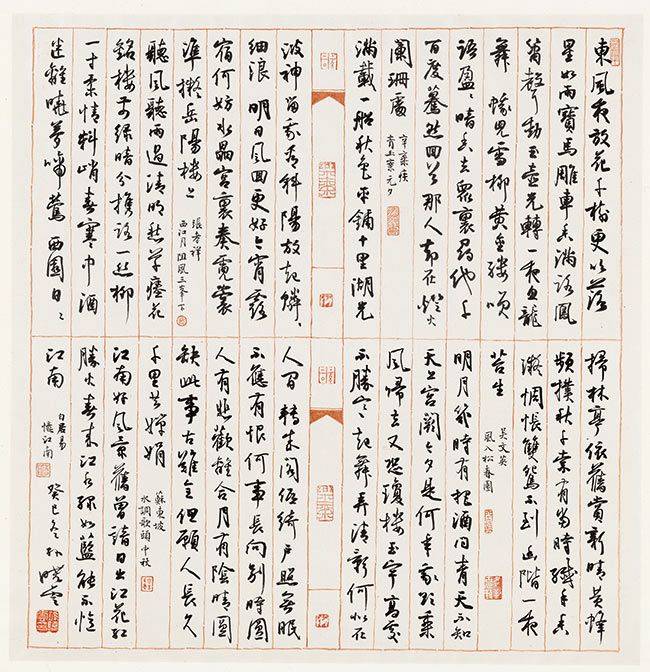 東風夜放花千樹更吹落
星如雨寶馬雕車香滿路鳳
簫聲動玉壺光轉一夜魚龍
舞 蛾兒雪柳黃金縷笑
語盈盈暗香去衆裏尋他千
百度驀然回首那人卻在燈火
闌珊處
辛棄疾
青玉案元夕
滿載一船秋色平鋪十里湖光
波神留我看斜陽放起鱗鱗
細浪 明日風回更好今宵露
宿何妨水晶宮裏奏霓裳
準擬岳陽樓上
張孝祥
西江月阻風三峯下
聽風聽雨過清明愁草瘞花
銘樓前綠暗分攜路一絲柳
一寸柔情料峭春寒中酒
迷離曉夢啼鶯 西園日日
掃林亭依舊賞新晴黃蜂
頻撲秋千索有當時纖手香
凝惆悵雙鴛不到幽階一夜
苔生
吳文英
風入松春園
明月幾時有把酒問青天不知
天上宮闕今夕是何年我欲乘
風歸去又恐瓊樓玉宇高處
不勝寒起舞弄清影何似在
人間 轉朱閣低綺戶照無眠
不應有恨何事長向別時圓
人有悲歡離合月有陰晴圓
缺此事古難全但願人長久
千里共嬋娟
蘇東坡
水調歌頭中秋
江南好風景舊曾諳日出江花紅
勝火春來江水綠如藍能不憶
江南
白居易
憶江南
癸巳冬 孫曉雲